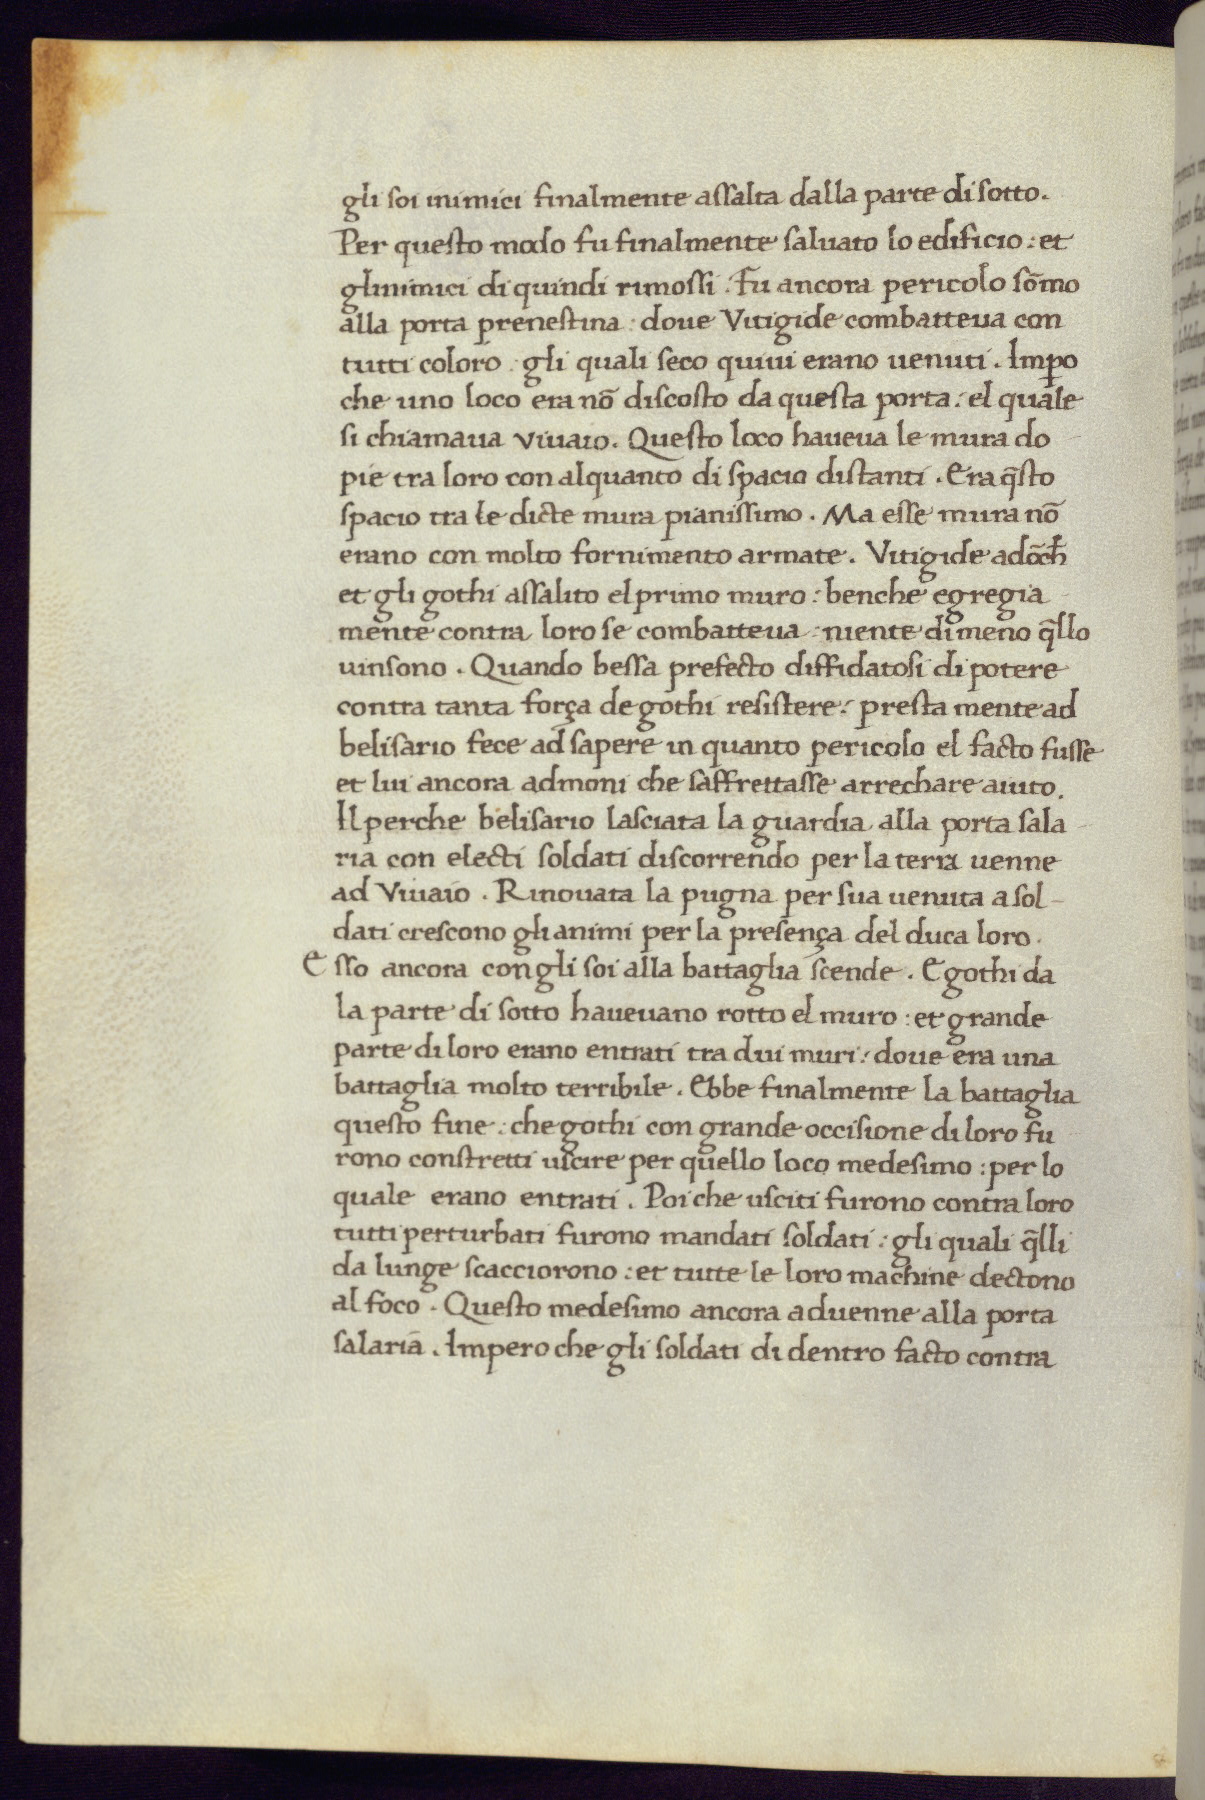 gli soi inimici finalmente assalta dalla parte di sotto.
Per questo modo fu finalmente saluato lo edificio : et
glinimici di quindi rimossi . Fu ancora pericolo sōmo
alla porta prenestina : doue Vitigide combatteua con
tutti coloro : gli quali seco quiui erano uenuti . Impo
che uno loco era nō discosto da questa porta : el quale
si chiamaua viuaio. Questo loco haueua le mura do-
pie tra loro con alquanto di spacio distanti . Era q̄sto
spacio tra le dicte mura pianissimo . Ma esse mura nō
erano con molto fornimento armate . Vitigide adōch
et gli gothi assalito el primo muro : benche egregia-
mente contra loro se combatteua : niente di meno q̄llo
uinsono . Quando bessa prefecto diffidatosi di potere
contra tanta força de gothi resistere : presta mente ad
belisario fece ad sapere in quanto pericolo el facto fusse
et lui ancora admoni che saffrettasse arrechare aiuto.
Il perche belisario lasciata la guardia alla porta sala-
ria con electi soldati discorrendo per la terra uenne
ad Viuaio . Rinouata la pugna per sua uenuta a sol-
dati crescono gli animi per la presença del duca loro .
E sso ancora con gli soi alla battaglia scende . E gothi da
la parte di sotto haueuano rotto el muro : et grande
parte di loro erano entrati tra dui muri : doue era una
battaglia molto terribile . Ebbe finalmente la battaglia
questo fine : che gothi con grande occisione di loro fu-
rono constretti uscire per quello loco medesimo : per lo
quale erano entrati . Poi che usciti furono contra loro
tutti perturbati furono mandati soldati : gli quali q̄lli
da lunge scacciorono : et tutte le loro machine dectono
al foco . Questo medesimo ancora aduenne alla porta
salaria . Impero che gli soldati di dentro facto contra